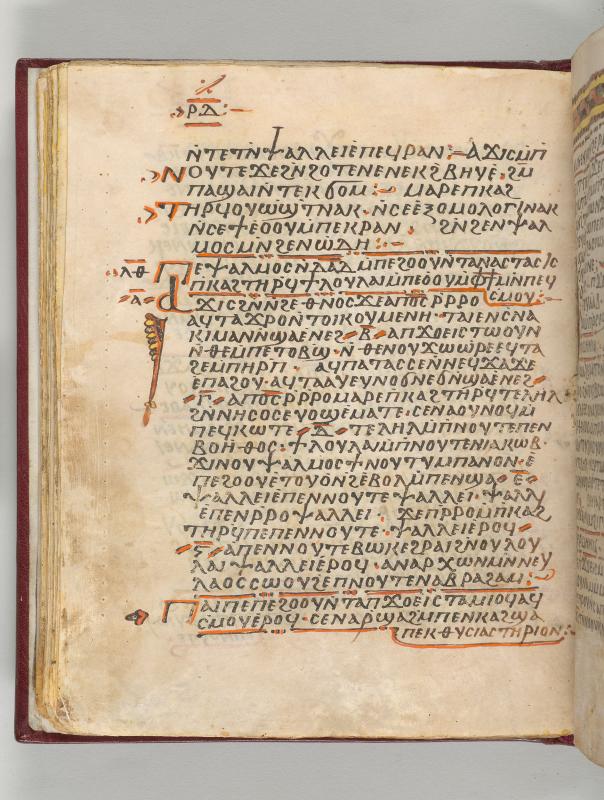 ⲣⲇ
ⲛ̇ⲧⲉⲧⲛ̇ⲯⲁⲗⲗⲉⲓⲉ̇ⲡⲉϥⲣⲁⲛ: ⲁϫⲓⲥⲙ̇ⲡ
ⲛⲟⲩⲧⲉϫⲉϩⲛ̇ϩⲟⲧⲉⲛⲉⲛⲉⲕϩⲃⲏⲩⲉ̇· ϩⲙ
ⲡⲁϣⲁⲓⲛ̇ⲧⲉⲕϭⲟⲙ: ⲙⲁⲣⲉⲡⲕⲁϩ
ⲧⲏⲣϥⲟⲩⲱ̇ϣⲧⲛⲁⲕ· ⲛ̇ⲥⲉⲉⲝⲟⲙⲟⲗⲟⲅⲓⲛⲁⲕ
ⲛ̇ⲥⲉⲯⲉ̇ⲟⲩⲙ̇ⲡⲉⲕⲣⲁⲛ· ϩⲛ̇ϩⲉⲛⲯⲁⲗ
ⲙⲟⲥⲙⲛ̇ϩⲉⲛⲱ̇ⲇⲏ:
ⲗⲑ ⲡⲉⲯⲁⲗⲙⲟⲥⲛ̇ⲇⲁⲇ ⲙ̇ⲡⲉϩⲟⲟⲩⲛ̇ⲧⲁⲛⲁⲥⲧⲁⲥⲓⲥ
ⲡⲕⲁϩⲧⲏⲣϥϯⲗⲟⲩⲗⲁⲓⲙ̇ⲡⲉⲟⲟⲩⲙ̇ⲫϯⲙⲛ̇ⲡⲉϥ
ⲥⲙⲟⲩ:
ⲁ ⲁϫⲓⲥϩⲛ̇ϩⲉⲑⲛⲟⲥϫⲉⲁⲡϭⲥⲣ̇ⲣⲣⲟ
ⲁϥⲧⲁϫⲣⲟⲛ̇ⲧⲟⲓⲕⲟⲩⲙⲉⲛⲏ· ⲧⲁⲓⲉⲛⲥⲛⲁ
ⲕⲓⲙⲁⲛⲛ̇ϣⲁⲉⲛⲉϩ· ⲃ̅· ⲁⲡϫⲟⲉⲓⲥⲧⲱⲟⲩⲛ
ⲛ̇ⲑⲉⲙ̇ⲡⲉⲧⲟⲃϣ· ⲛ̇ⲑⲉⲛⲟⲩϫⲱⲱⲣⲉⲉϥⲧⲁ
ϩⲉⲙ̇ⲡⲏⲣⲡ· ⲁϥⲡⲁⲧⲁⲥⲥⲉⲛⲛⲉϥϫⲁϫⲉ
ⲉ̇ⲡⲁϩⲟⲩ· ⲁϥⲧⲁⲁⲩⲉⲩⲛⲟϭⲛⲉϭⲛ̇ϣⲁⲉⲛⲉϩ
ⲅ̅· ⲁⲡϭⲥⲣ̇ⲣⲣⲟⲙⲁⲣⲉⲡⲕⲁϩⲧⲏⲣϥⲧⲉⲗⲏⲗ
ϩⲛ̇ⲛⲏⲥⲟⲥⲉⲩⲟϣⲉⲙⲁⲧⲉ· ⲥⲉⲛⲁⲟⲩⲛⲟϥⲙ
ⲡⲉϥⲕⲱⲧⲉ· ⲇ̅· ⲧⲉⲗⲏⲗⲙ̇ⲡⲛⲟⲩⲧⲉⲡⲉⲛ
ⲃⲟⲏⲑⲟⲥ: ϯⲗⲟⲩⲗⲁⲓⲙ̇ⲡⲛⲟⲩⲧⲉⲛⲓⲁⲕⲱⲃ·
ϫⲓⲛⲟⲩⲯⲁⲗⲙⲟⲥϯⲛⲟⲩⲧⲩⲙⲡⲁⲛⲟⲛ· ⲉ̇
ⲡⲉϩⲟⲟⲩⲉ̇ⲧⲟⲩⲟⲛϩⲉ̇ⲃⲟⲗⲙ̇ⲡⲉⲛϣⲁ· ⲉ̅·
ⲯⲁⲗⲗⲉⲓⲉ̇ⲡⲉⲛⲛⲟⲩⲧⲉⲯⲁⲗⲗⲉⲓ· ⲯⲁⲗⲗⲩ
ⲉ̇ⲡⲉⲛⲣ̇ⲣⲟⲯⲁⲗⲗⲉⲓ· ϫⲉⲡⲣ̇ⲣⲟⲙ̇ⲡⲕⲁϩ
ⲧⲏⲣϥⲡⲉⲡⲉⲛⲛⲟⲩⲧⲉ· ⲯⲁⲗⲗⲉⲓⲉ̇ⲣⲟϥ·
ⲋ̅· ⲁⲡⲉⲛⲛⲟⲩⲧⲉⲃⲱⲕⲉϩⲣⲁⲓϩⲛ̇ⲟⲩⲗⲟⲩ
ⲗⲁⲓ ⲯⲁⲗⲗⲉⲓⲉ̇ⲣⲟϥ· ⲁⲛⲁⲣⲭⲱⲛⲙⲛ̇ⲛⲉⲩ
ⲗⲁⲟⲥⲥⲱⲟⲩϩⲉⲡⲛⲟⲩⲧⲉⲛⲁⲃⲣⲁϩⲁⲙ:
ⲡⲁⲓⲡⲉⲡⲉϩⲟⲟⲩⲛ̇ⲧⲁⲡϫⲟⲉⲓⲥⲧⲁⲙⲓⲟϥⲁϥ
ⲥⲙⲟⲩⲉ̇ⲣⲟϥ· ⲥⲉⲛⲁⲣ̇ϣⲁϩⲙ̇ⲡⲉⲛⲕⲁϩϣⲁ
ⲡⲉⲕⲑⲩⲥⲓⲁⲥⲧⲏⲣⲓⲟⲛ: